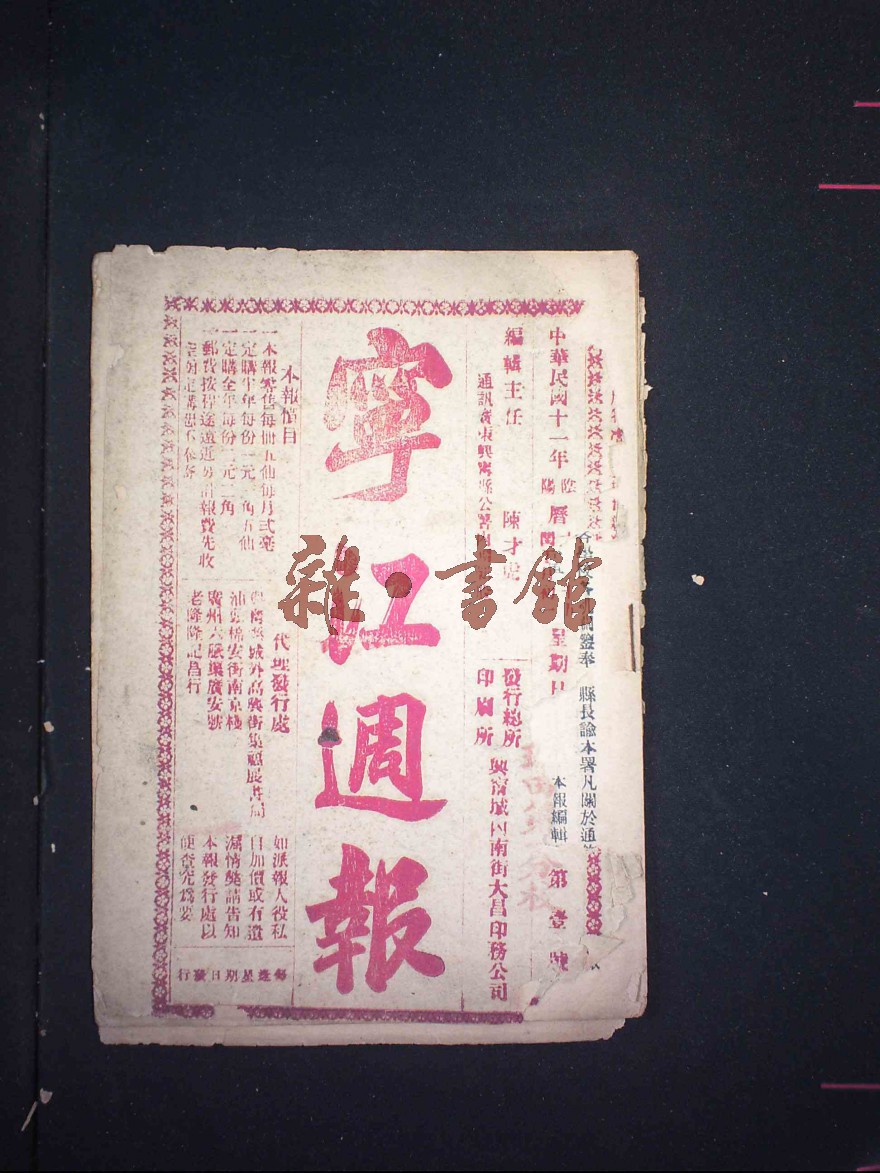 縣長諭本署凡關於通
本報編輯
中華民國十一年
陰
陽
曆
星期日
第壹號
編輯主任 陳才
通訊處廣東興寧縣公署
發行總所
印刷所
興寧城內南街大昌印務公司
寧江週報
本報價目
一本報零售每冊五仙每月式毫
一定購半年每份一元一角五仙
一定購全年每份二元二角
一郵費按程途遠近另計報費先收
代理發行處
興寧縣城外高興街集福展書局
汕頭橋安街南京棧
廣州大巖巢廣安號
老隆隆記昌行
如派報人役私
自加價或有遺
漏情獘請告知
本報發行處以
便查究為要
每逢星期日發行
雜·書館